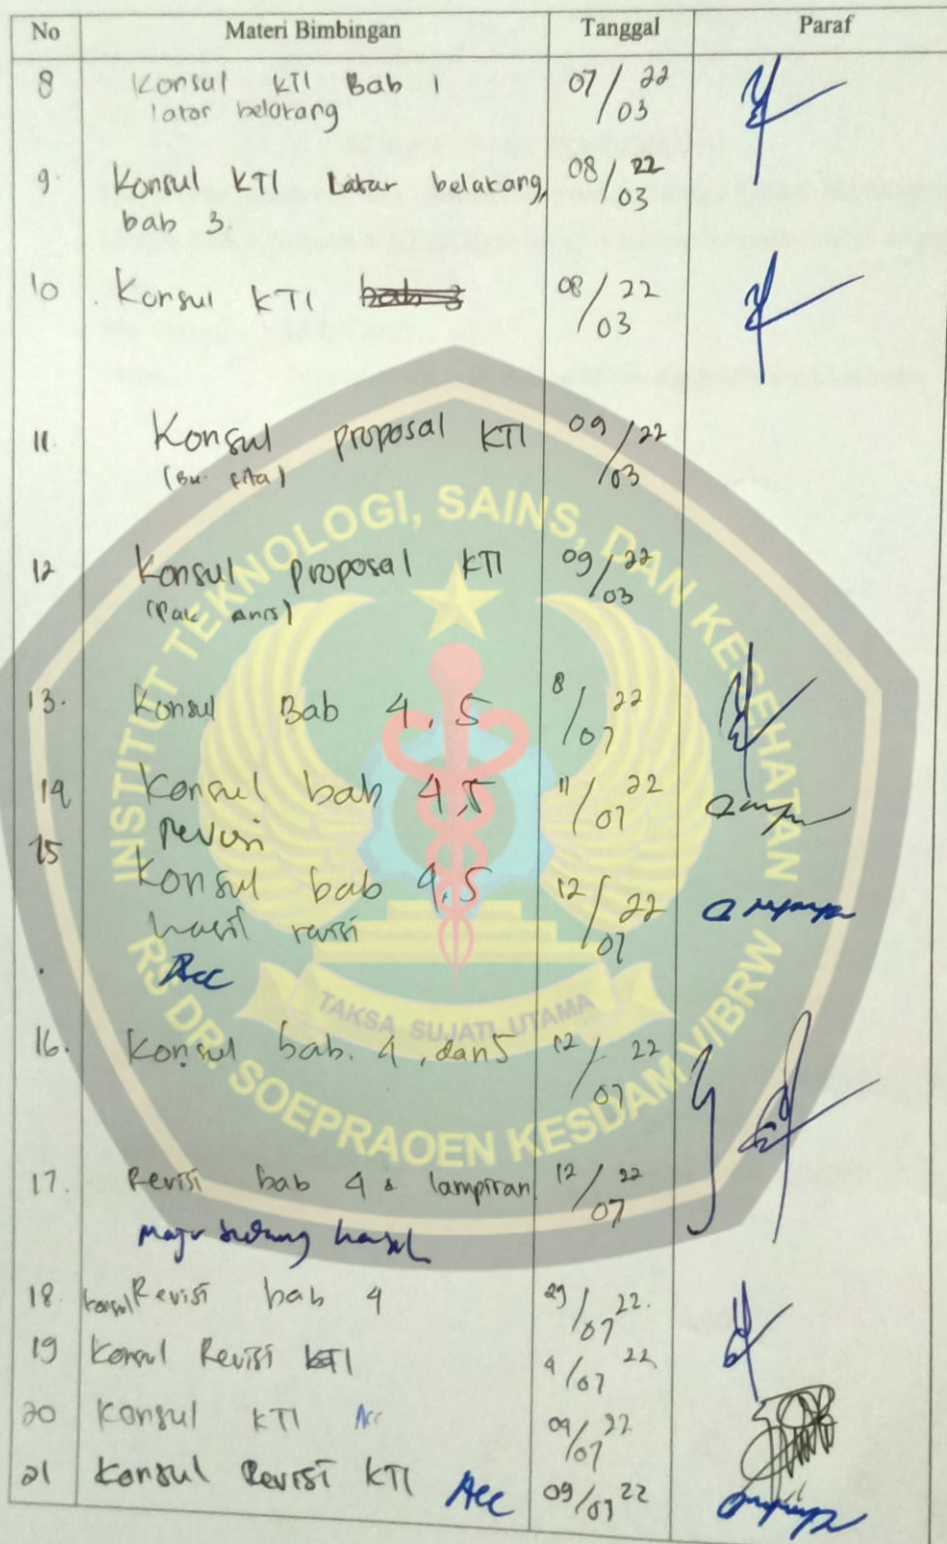 No Materi Bimbingan Tanggal Paraf
8 Konsul KTI Bab 1 07/03 22
latar belakang
9. Konsul KTI Latar belakang, 08/03 22
bab 3.
10 Konsul KTI bab 3 08/03 22
11. Konsul proposal KTI 09/03 22
(Bu. Fita)
12 Konsul proposal KTI 09/03 22
(Pak Anis)
13. Konsul Bab 4, 5 8/07 22
14 Konsul bab 4,5 11/07 22
revisi
15 Konsul bab 4,5 12/07 22
hasil revisi
Acc
16. Konsul bab. 4, dan 5 12/07 22
17. Revisi bab 4 & lampiran 12/07 22
maju sidang hasil
18. konsul Revisi bab 4 29/07 22.
19 Konsul Revisi KTI 4/07 22
20 Konsul KTI Acc 09/07 22
21 Konsul Revisi KTI Acc 09/07 22
INSTITUT TEKNOLOGI, SAINS, DAN KESEHATAN
TAKSA SUJATI UTAMA
RS DR. SOEPRAOEN KESDAM V/BRW